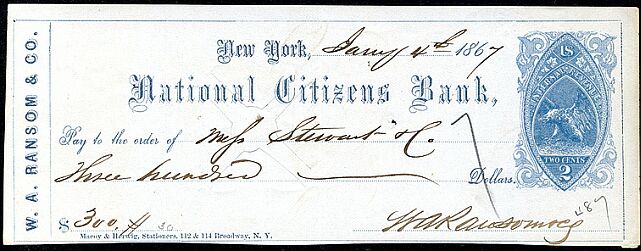 W. A. RANSOM & CO.
New York, Jany 4th 1867
National Citizens Bank,
Pay to the order of Mess Stewart & Co.
Three hundred Dollars.
$ 300.
W A Ransom & Co
Maroy & Herwig, Stationers, 112 & 114 Broadway, N. Y.
U.S.
INTER. REVENUE
TWO CENTS
2
487